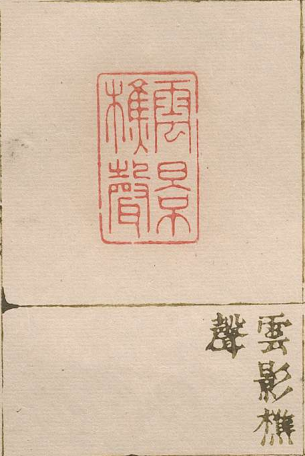 雲景
樵聲
雲影樵
聲